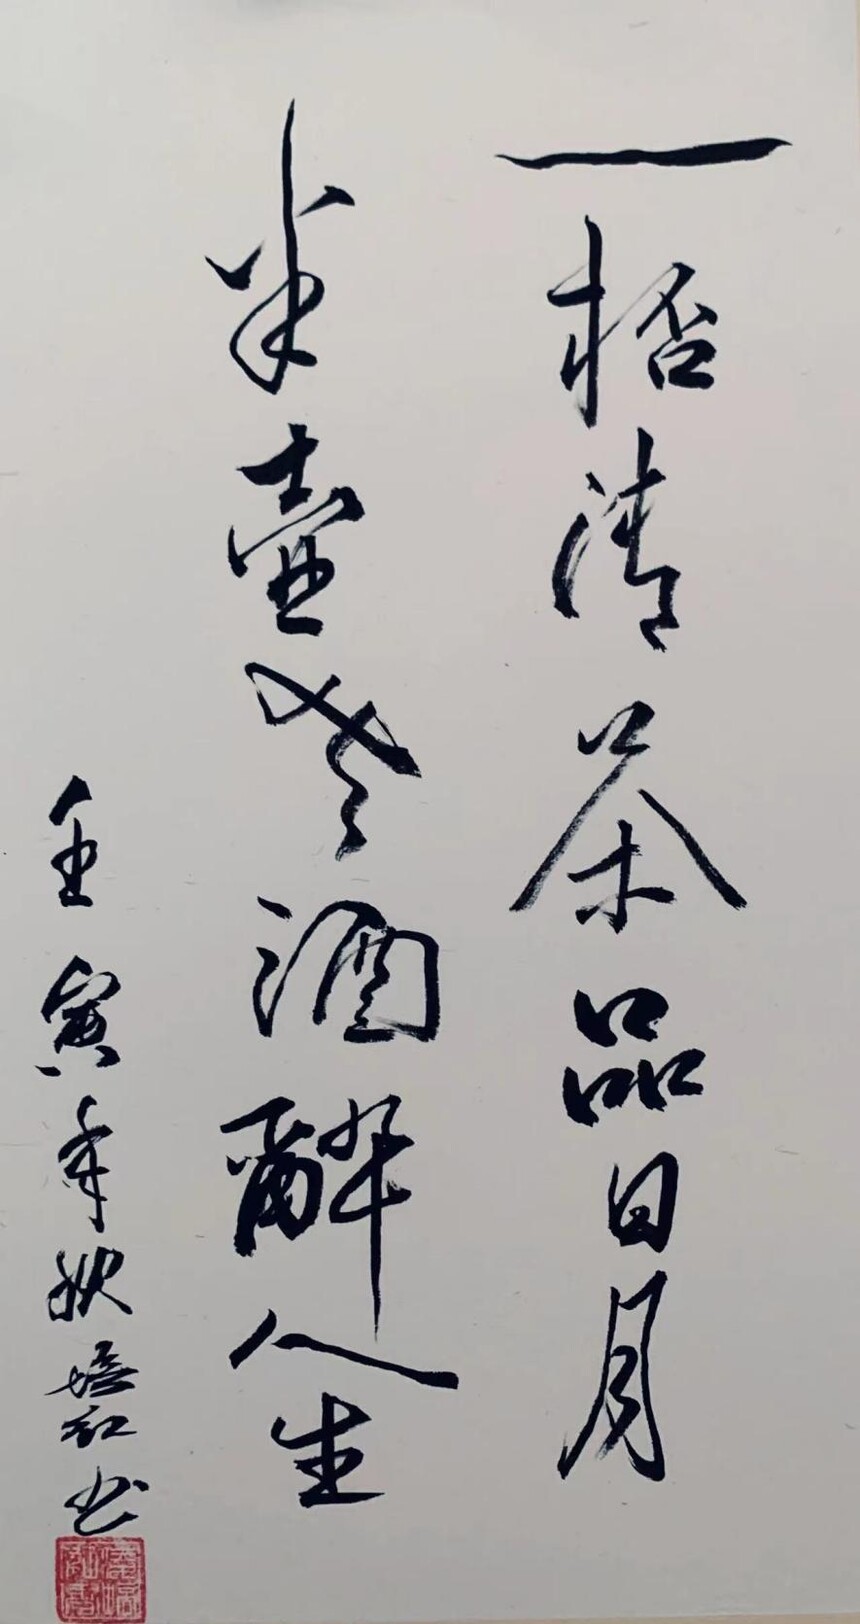 一桮清茶品日月
半壶老酒醉人生
壬寅年秋培红书